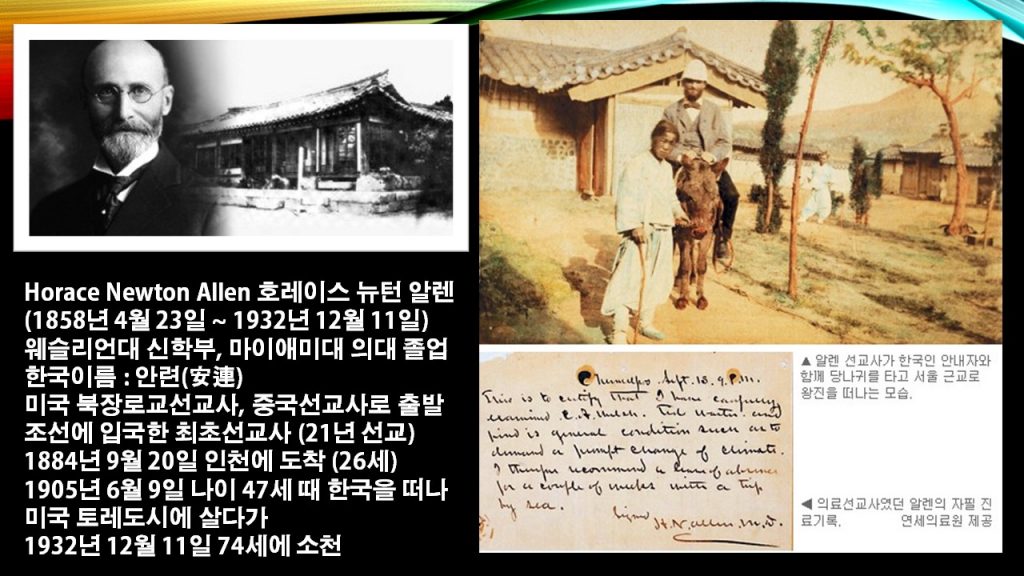 Horace Newton Allen 호레이스 뉴턴 알렌
(1858년 4월 23일 ~ 1932년 12월 11일)
웨슬리언대 신학부, 마이애미대 의대 졸업
한국이름 : 안련(安連)
미국 북장로교선교사, 중국선교사로 출발
조선에 입국한 최초선교사 (21년 선교)
1884년 9월 20일 인천에 도착 (26세)
1905년 6월 9일 나이 47세 때 한국을 떠나
미국 토레도시에 살다가
1932년 12월 11일 74세에 소천
▲ 알렌 선교사가 한국인 안내자와
함께 당나귀를 타고 서울 근교로
왕진을 떠나는 모습.
Chemulpo. Sept. 9 P.M.
This is to certify that I have carefully
examined and
general condition such as to
demand a prompt change of climate.
I therefore recommend a leave of absence
for a couple of weeks with a trip
by sea.
Signed H. N. Allen, M. D.
◀ 의료선교사였던 알렌의 자필 진
료기록. 연세의료원 제공